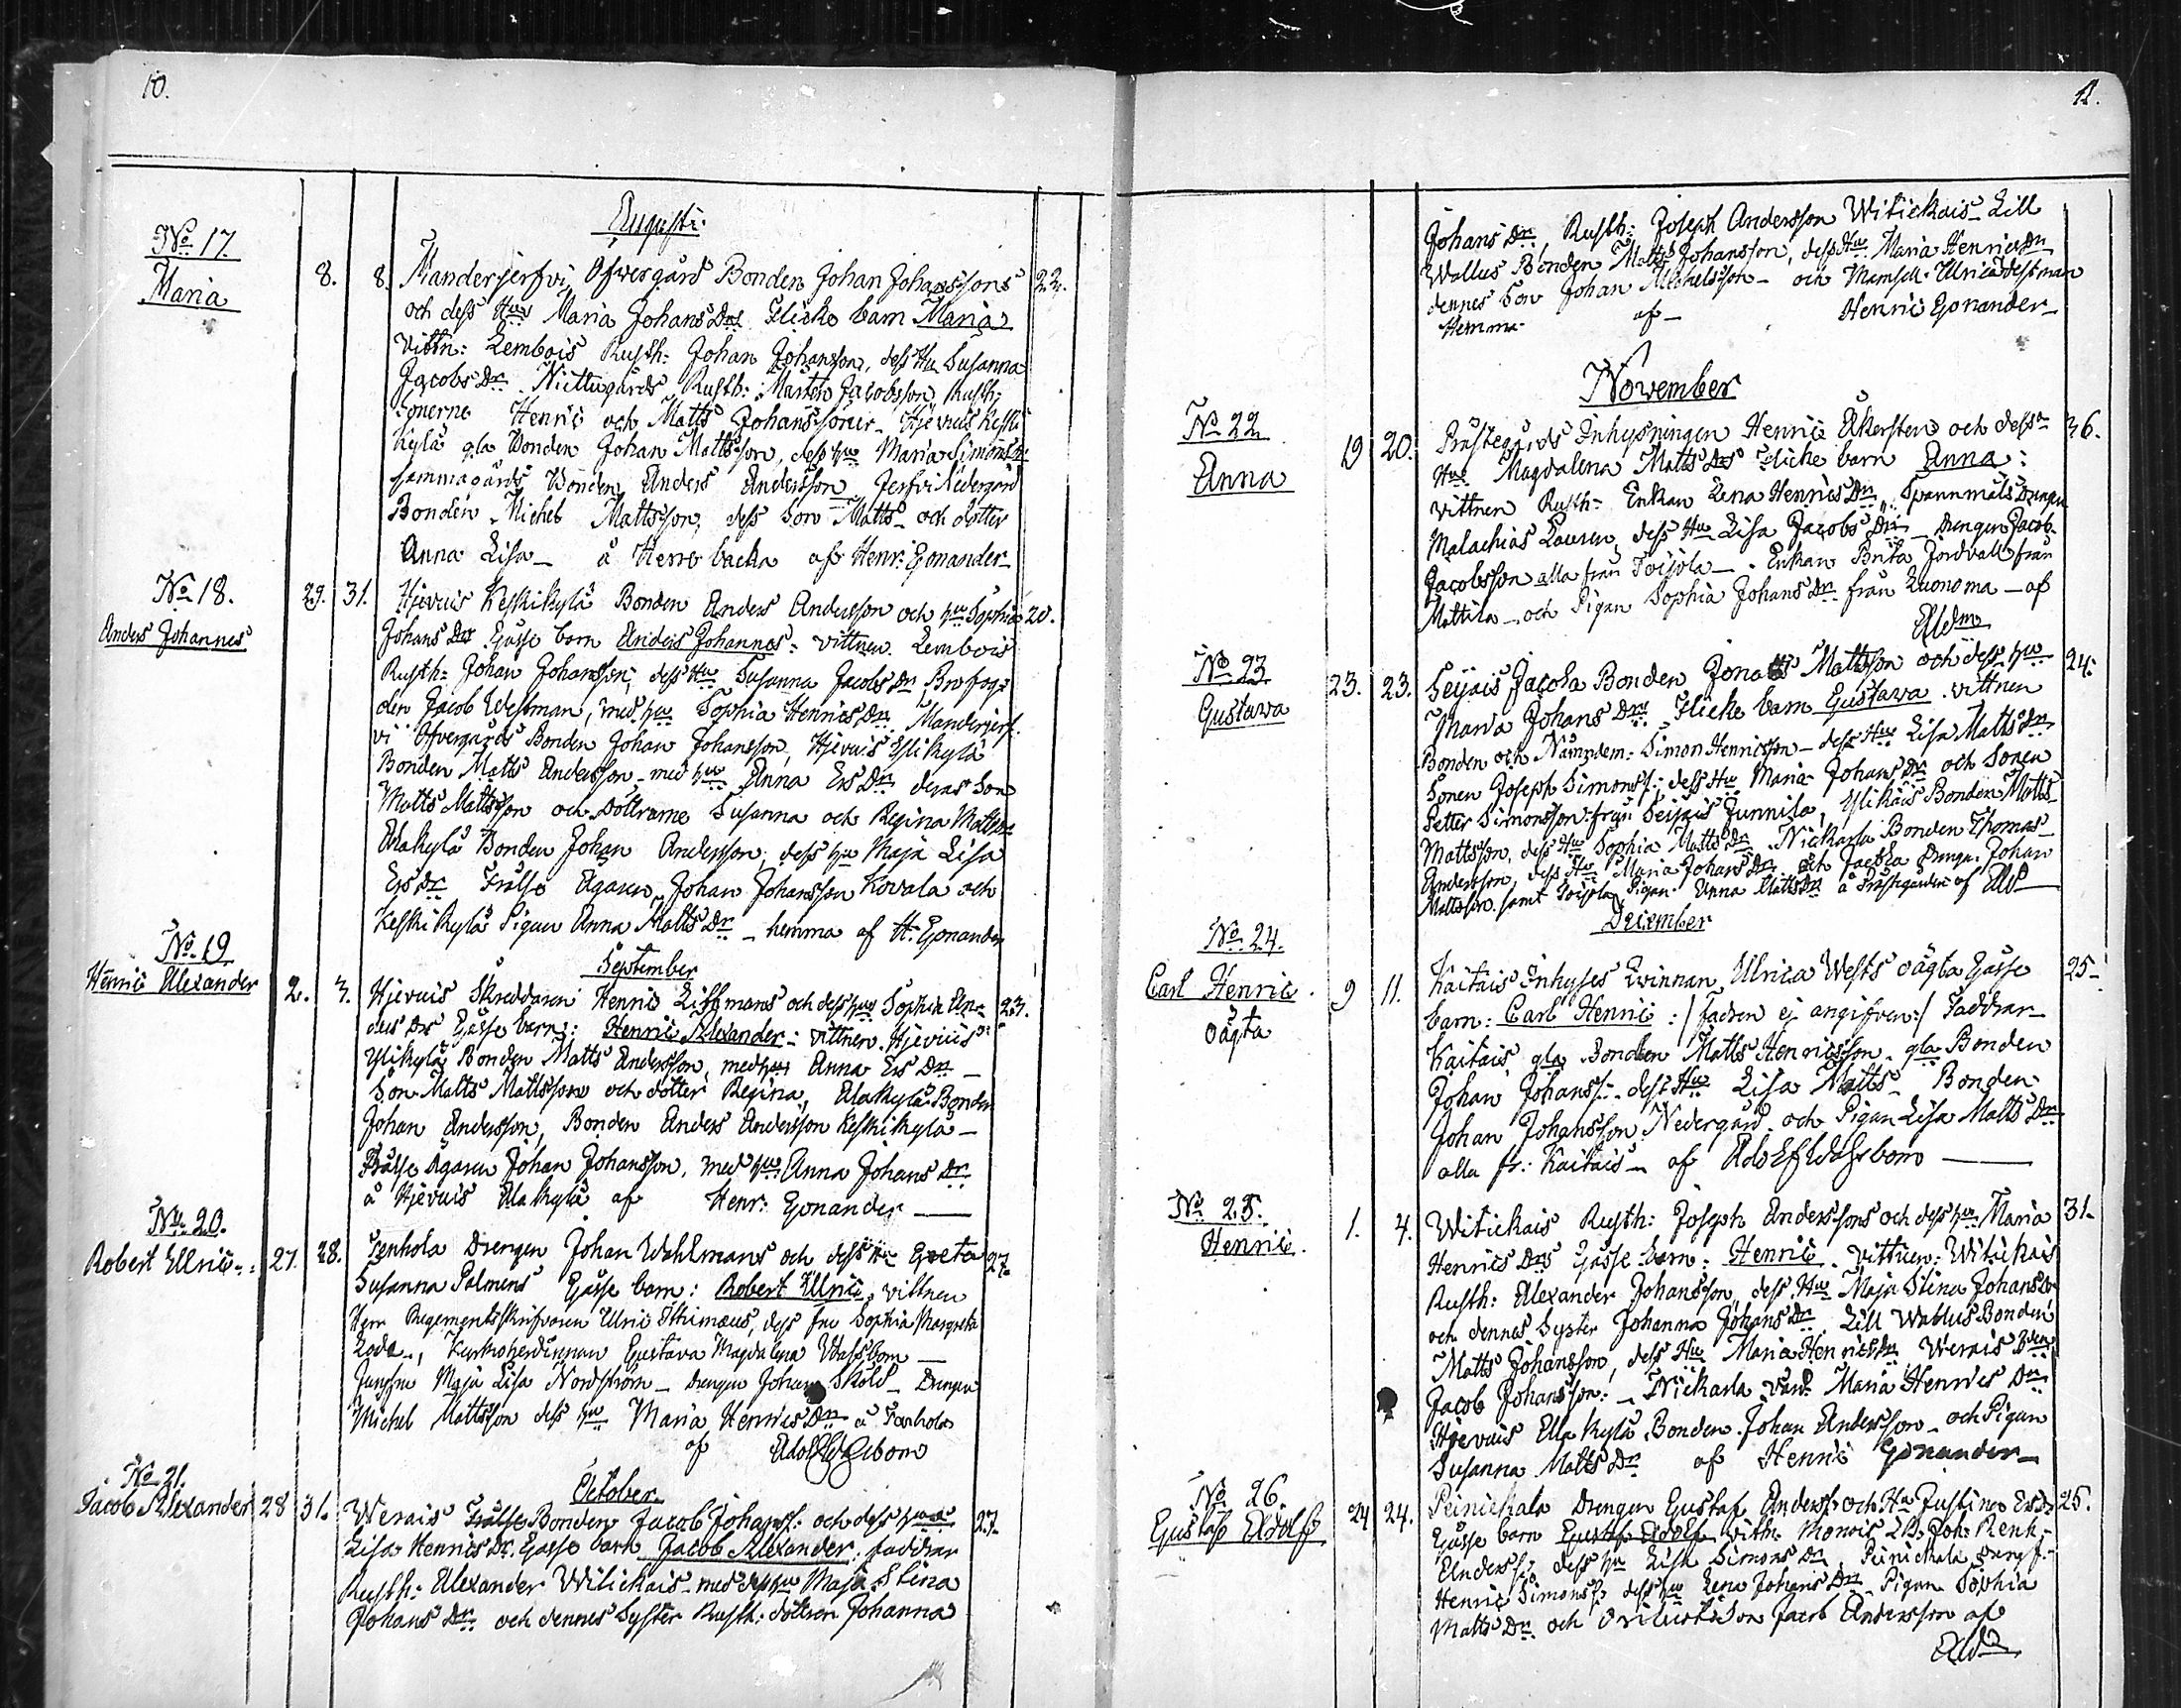 10.
Augusti.
No 17.
Maria
8. 8. Manderjerfvi Ofvergård Bonden Johan Johanssons 22.
och dess Hus Maria Johans Drs Flicko barn Maria
Vittn: Lembois Rusth: Johan Johansson, dess Hu Susanna
Jacobs Dr Niettugårds Rusth: Mårten Jacobsson, Rusth:
sönerne Henric och Matts Johanssöner. Hjevuis Keski
kylä gla Bonden Johan Mattsson, dess hu Maria Simons Dr
sammagårds Bonden Anders Andersson Jerfvi Nedergård
Bonden Michel Mattsson, dess Son Matts och dotter
Anna Lisa å Herrebacka af Henr: Gonander
No 18.
Anders Johannes
29. 31. Hjevuis Keskikylä Bonden Anders Andersson och hu Sophia 20.
Johans Drs Gosse barn Anders Johannes: vittnen Lembois
Rusth: Johan Johansson, dess Hu Susanna Jacobs Dr Brofog-
den Jacob Westman, med hu Sophia Henrics Dr Manderjerf-
vi Ofvergårds Bonden Johan Johansson, Hjevuis Ylikylä
Bonden Matts Andersson, med hu Anna Ers Dr deras Son
Matts Mattsson och Döttrarne Susanna och Regina Matts Dr
Alakylä Bonden Johan Andersson, dess hu Maja Lisa
Ers Dr Frälse Ägaren Johan Johansson Kovala och
Keskikylä Pigan Anna Matts Dr hemma af H: Gonander
September
No 19
Henric Alexander
2. 3. Hjevuis Skreddaren Henric Liffmans och dess hus Sophia An- 23.
ders Drs Gosse barn: Henric Alexander: vittnen Hjevuis
Ylikylä Bonden Matts Andersson, med hu Anna Ers Dr
Son Matts Mattsson och dotter Regina, Alakylä Bonden
Johan Andersson, Bonden Anders Andersson Keskikylä
Frälse Ägaren Johan Johansson, med hu Anna Johans Dr
å Hjevuis Alakylä af Henr: Gonander
No 20.
Robert Ulric
27. 28. Tenhola Drengen Johan Wahlmans och dess Hu Greta 27.
Susanna Palmens Gosse barn: Robert Ulric, vittnen
Herr Regementsskrifvaren Ulric Ithimæus, dess fru Sophia Margreta
Gustava Magdalena
Junfru Maja Lisa Nordström Drengen Johan Sköld Drengen
Michel Mattsson dess hu Maria Henrics Dr å Tenhola
af
October.
No 21.
Jacob Alexander
28 31. Werais Frälse Bonden Jacob Johanss: och dess hus 27.
Lisa Henrics Dr. Gosse barn Jacob Alexander. faddrar
Rusth: Alexander Witickais med dess hu Maja Stina
Johans Dr och dennes Syster Rusth: dottren Johanna
11.
Johans Dr Rusth: Joseph Andersson Witickais Lill
Wallus Bonden Matts Johansson, dess Hu Maria Henrics Dr
dennes Son Johan Michelsson och Mamsell Ulrica
Hemma af Henric Gonander
November
No 22
Anna
19 20. Prästegårds Inhysningen Henric Åkerstens och dess 36.
Hus Magdalena Matts Drs flicke barn Anna:
vittnen Rusth: Enkan Lena Henrics Dr, Spannmåls
Malachias Lauren, dess Hu Lisa Jacobs Dr Drengen Jacob
Jacobsson alla från Toijola Enkan Brita från
Mattila och Pigan Sophia Johans Dr från Luonoma af
AWm
No 23
Gustava
23. 23. Seijais Jacola Bonden Jonas Mattsson och dess hu 24.
Maria Johans Drs Flicke barn Gustava. vittnen
Bonden och Nämndem: Simon Henricsson dess Hu Lisa Matts Dr
Sonen Joseph Simonss: dess Hu Maria Johans Dr och Sonen
Petter Simonsson från Seijais Junnila, Ylikäis Bonden Matts
Mattsson, dess Hu Sophia Matts Dr Nickarla Bonden Thomas
Andersson, dess Hu Maria Johans Dr och Jacola Drengen Johan
Mattsson samt Toijola Pigan Anna Matts Dr å Prästegården af AWm
December
No 24.
Carl Henric
oägta
9 11. Kaitais Inhyses Qvinnan Ulrica Wests oägta Gosse 25
barn: Carl Henric :/ fadren ej angifven:/ Faddrar
Kaitais gla Bonden Matts Henricsson gla Bonden
Johan Johanss: dess Hu Lisa Matts Bonden
Johan Johansson Nedergård och Pigan Lisa Matts Dr
alla fr: Kaitais af Adolf Wahlbom
No 25.
Henric.
1. 4. Witickais Rusth: Joseph Anderssons och dess hu Maria 31.
Henrics Drs Gosse barn: Henric. vittnen: Witickais
Rusth: Alexander Johansson, dess Hu Maja Stina Johans Dr
och dennes Syster Johanna Johans Dr Lill Wallus Bonden
Matts Johansson, dess Hu Maria Henrics Dr Werais Bon:
Jacob Johansson: Nickarla Maria Henrics Dr
Hjevuis Ala kylä Bonden Johan Andersson och Pigan
Susanna Matts Dr af Henric Gonander
No 26.
Gustaf Adolf
24 24. Peinickala Drengen Gustaf Anderss: och Hu Justina Ers Dr 25.
Gosse barn Gustaf Adolf vittn:
Anderss: dess hu Lisa Simons Dr, Peinickala
Henric Simonss: dess hu Lena Johans Dr Pigan Sophia
Matts Dr och Son Jacob Andersson af
AWm